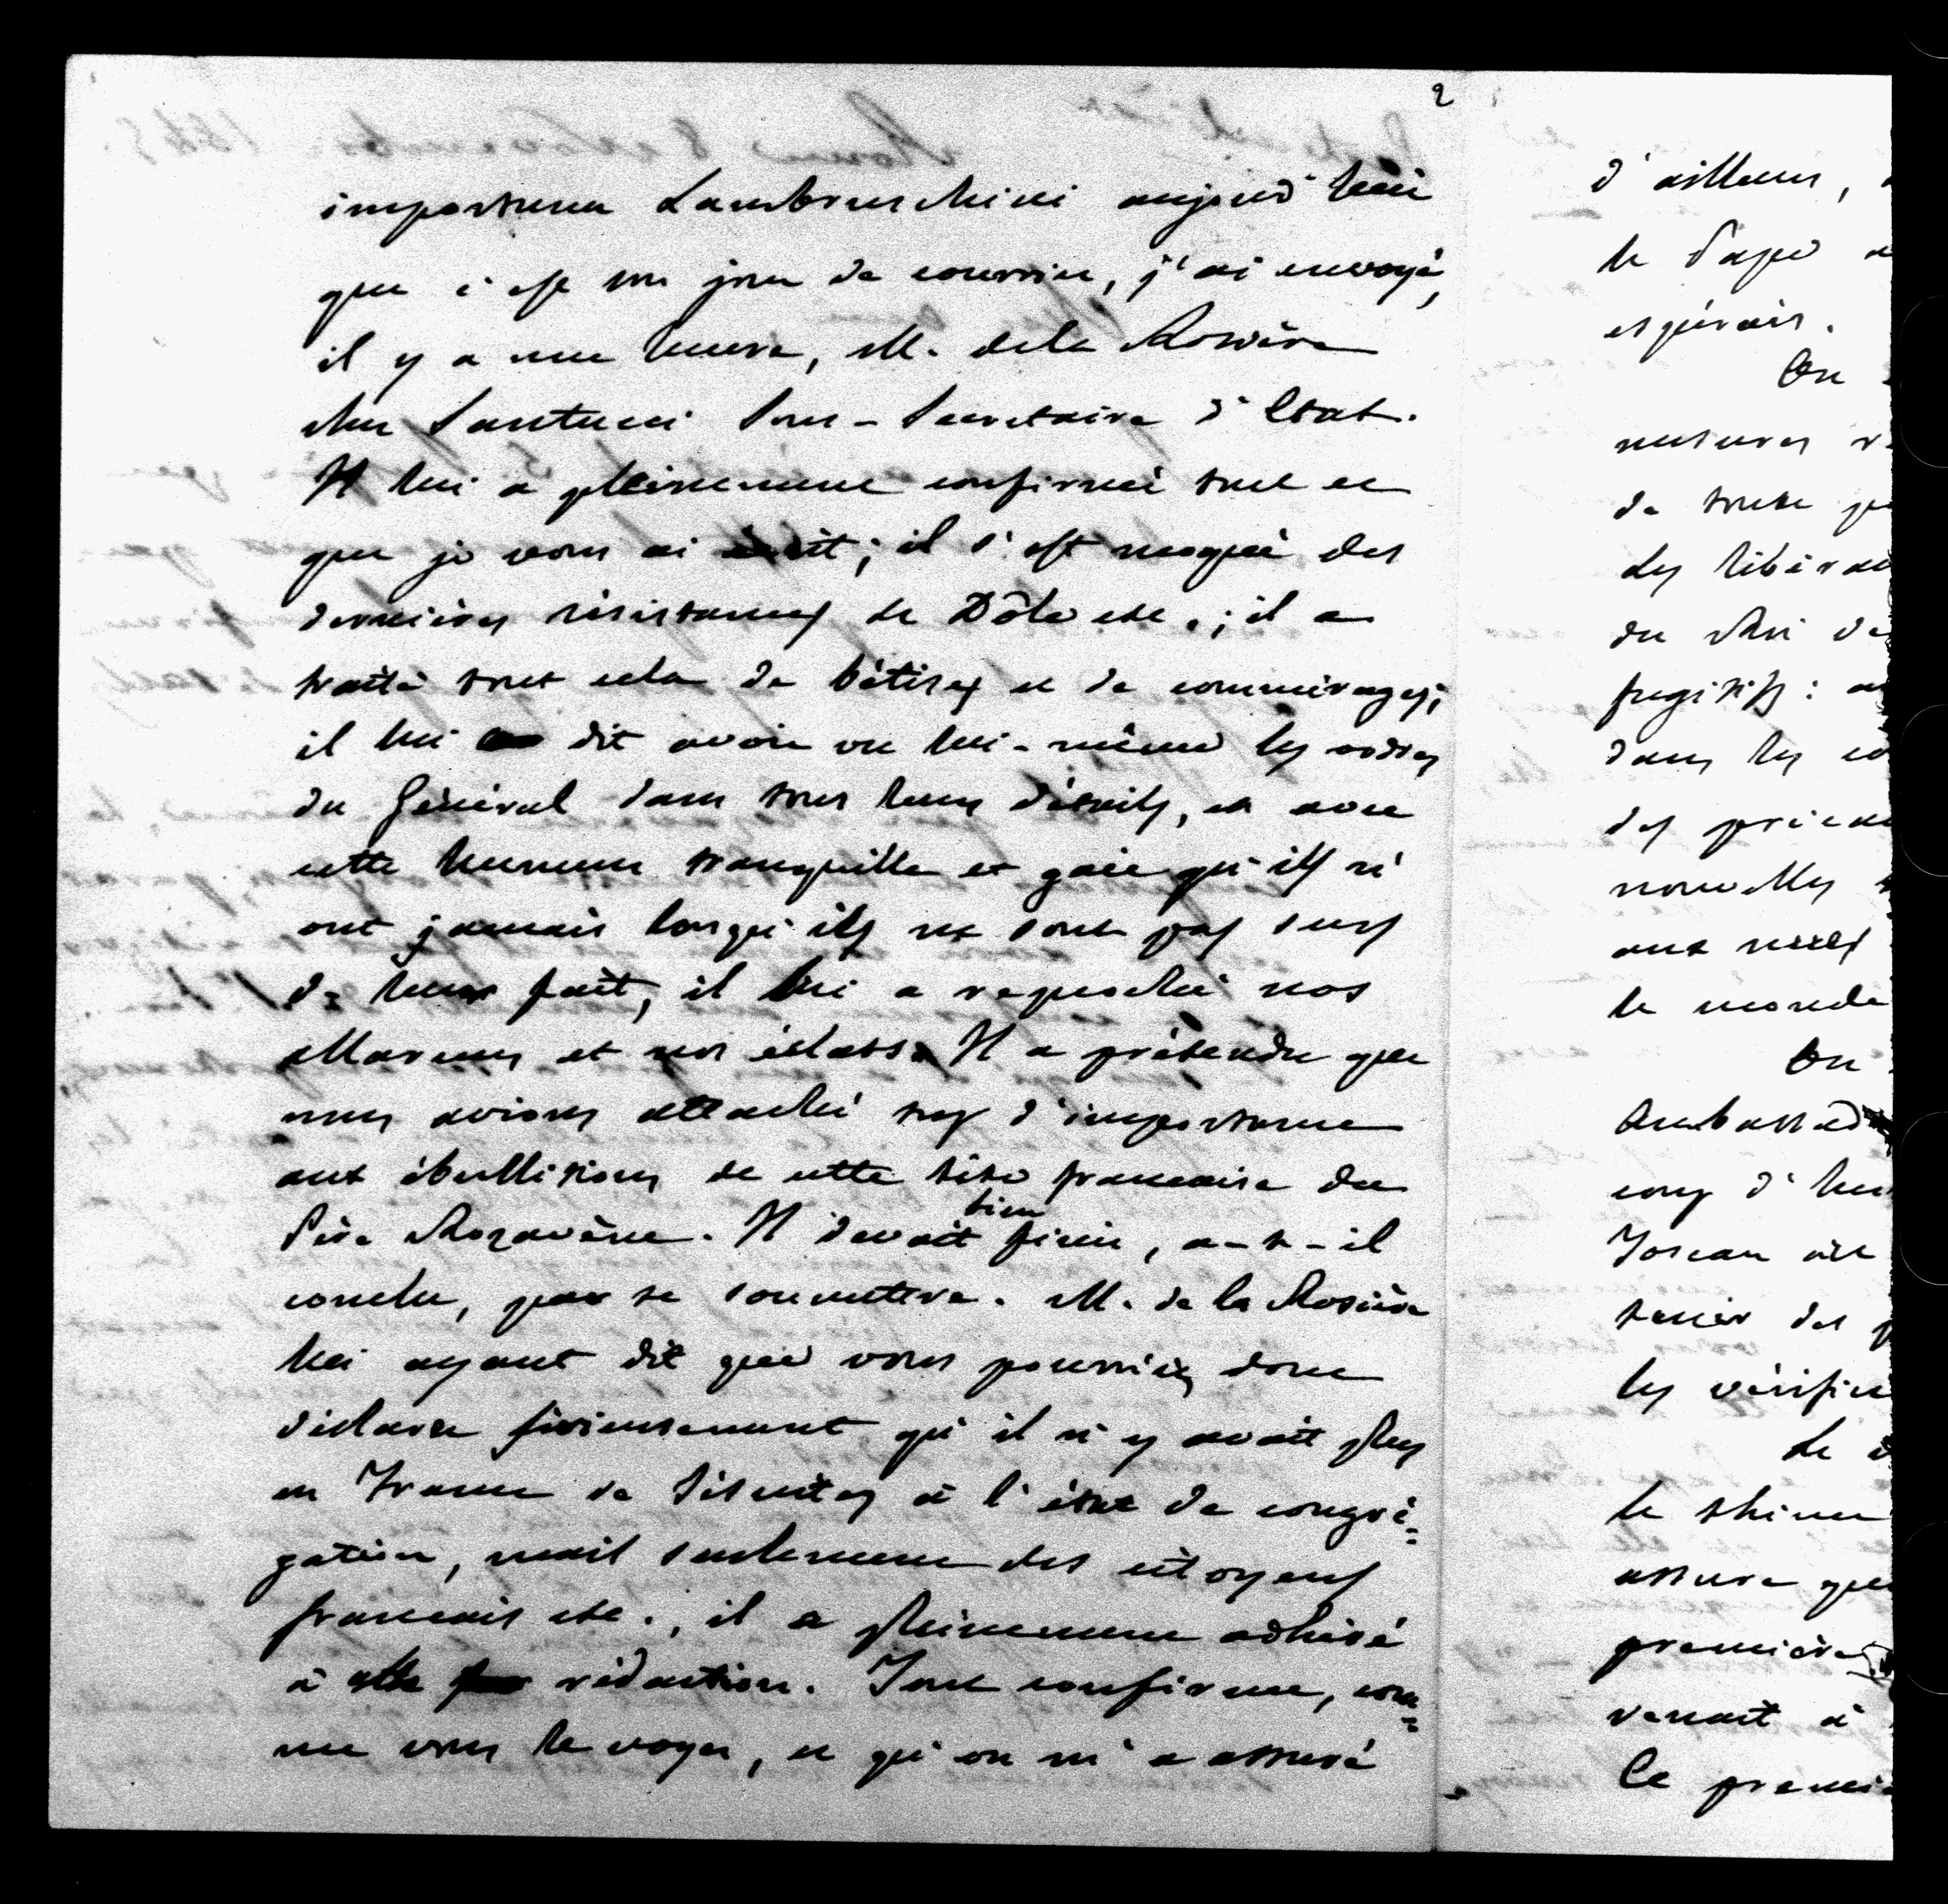 2
importuner Lambruschini aujourd'hui
que c'est son jour de courrier, j'ai envoyé,
il y a une heure, M. de la Rosière
chez Santucci Sous-Secrétaire d'Etat.
Il lui a pleinement confirmé tout ce
que je vous ai écrit; il s'est moqué des
dernières résistances de Dôle etc.; il a
traité tout cela de bêtises et de commérages;
il lui a dit avoir vu lui-même les ordres
du Général dans tous leurs détails, et avec
cette humeur tranquille et gaie qu'ils n'
ont jamais lorsqu'ils ne sont pas surs
de leur fait, il lui a reproché nos
allarmes et nos éclats. Il a prétendu que
nous avions attaché trop d'importance
aux ébullitions de cette tête francaise du
Père Rozavène. Il devait bien finir, a-t-il
conclu, par se soumettre. M. de la Rosière
lui ayant dit que vous pourriez donc
déclarer sérieusement qu'il n'y avait plus
en France de Jésuites à l'état de congré=
gation, mais seulement des citoyens
francais etc., il a pleinement adhéré
à cette rédaction. Tout confirme, com=
me vous le voyez, ce qu'on m'a assuré
d'ailleurs,
le Pape
espérais.
On
mesures
de toute
Les libérau
du Roi de
fugitifs:
dans les co
des
nouvelles
aux
le monde
On
Ambassad
coup d'
Toscan
tenir des
les vérifie
Le
le
assure que
première
venait à
Ce premie